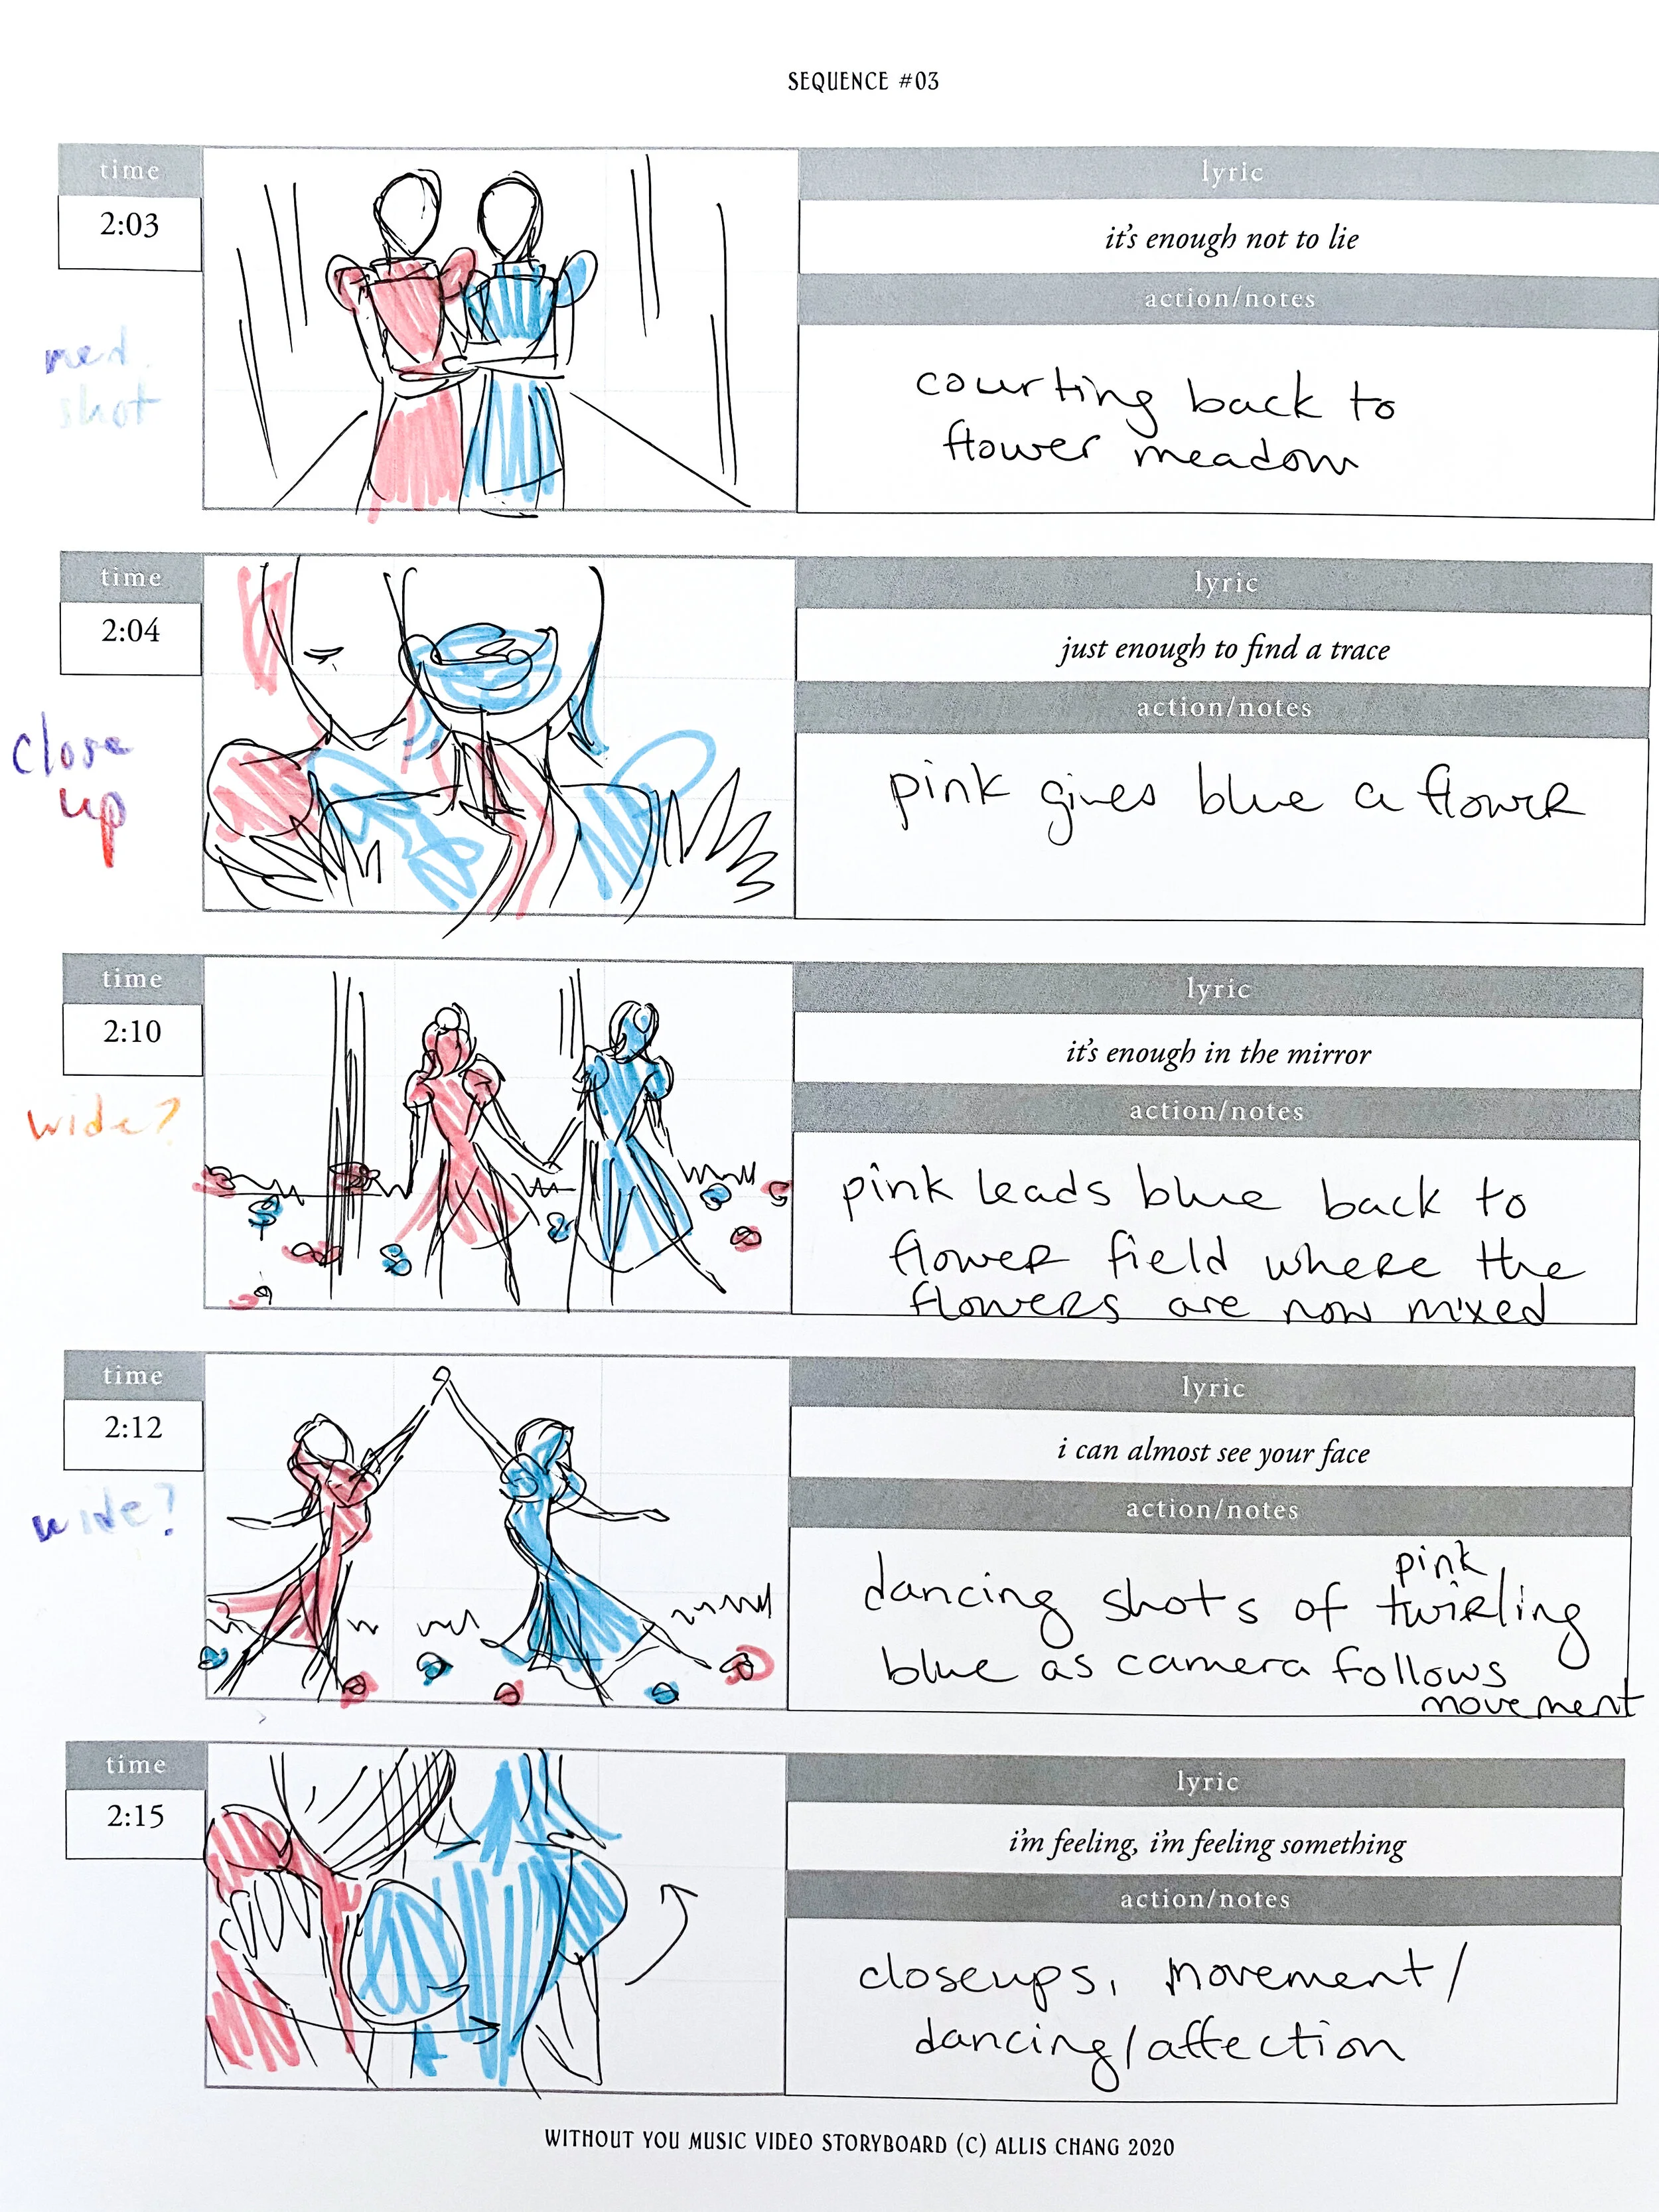 SEQUENCE #03
time
2:03
med.
shot
lyric
it's enough not to lie
action/notes
courting back to
flower meadow
time
2:04
close
up
lyric
just enough to find a trace
action/notes
pink gives blue a flower
time
2:10
wide?
lyric
it's enough in the mirror
action/notes
pink leads blue back to
flower field where the
flowers are now mixed
time
2:12
wide?
lyric
i can almost see your face
action/notes
pink
dancing shots of twirling
blue as camera follows
movement
time
2:15
lyric
i'm feeling, i'm feeling something
action/notes
closeups, movement/
dancing/affection
WITHOUT YOU MUSIC VIDEO STORYBOARD (C) ALLIS CHANG 2020